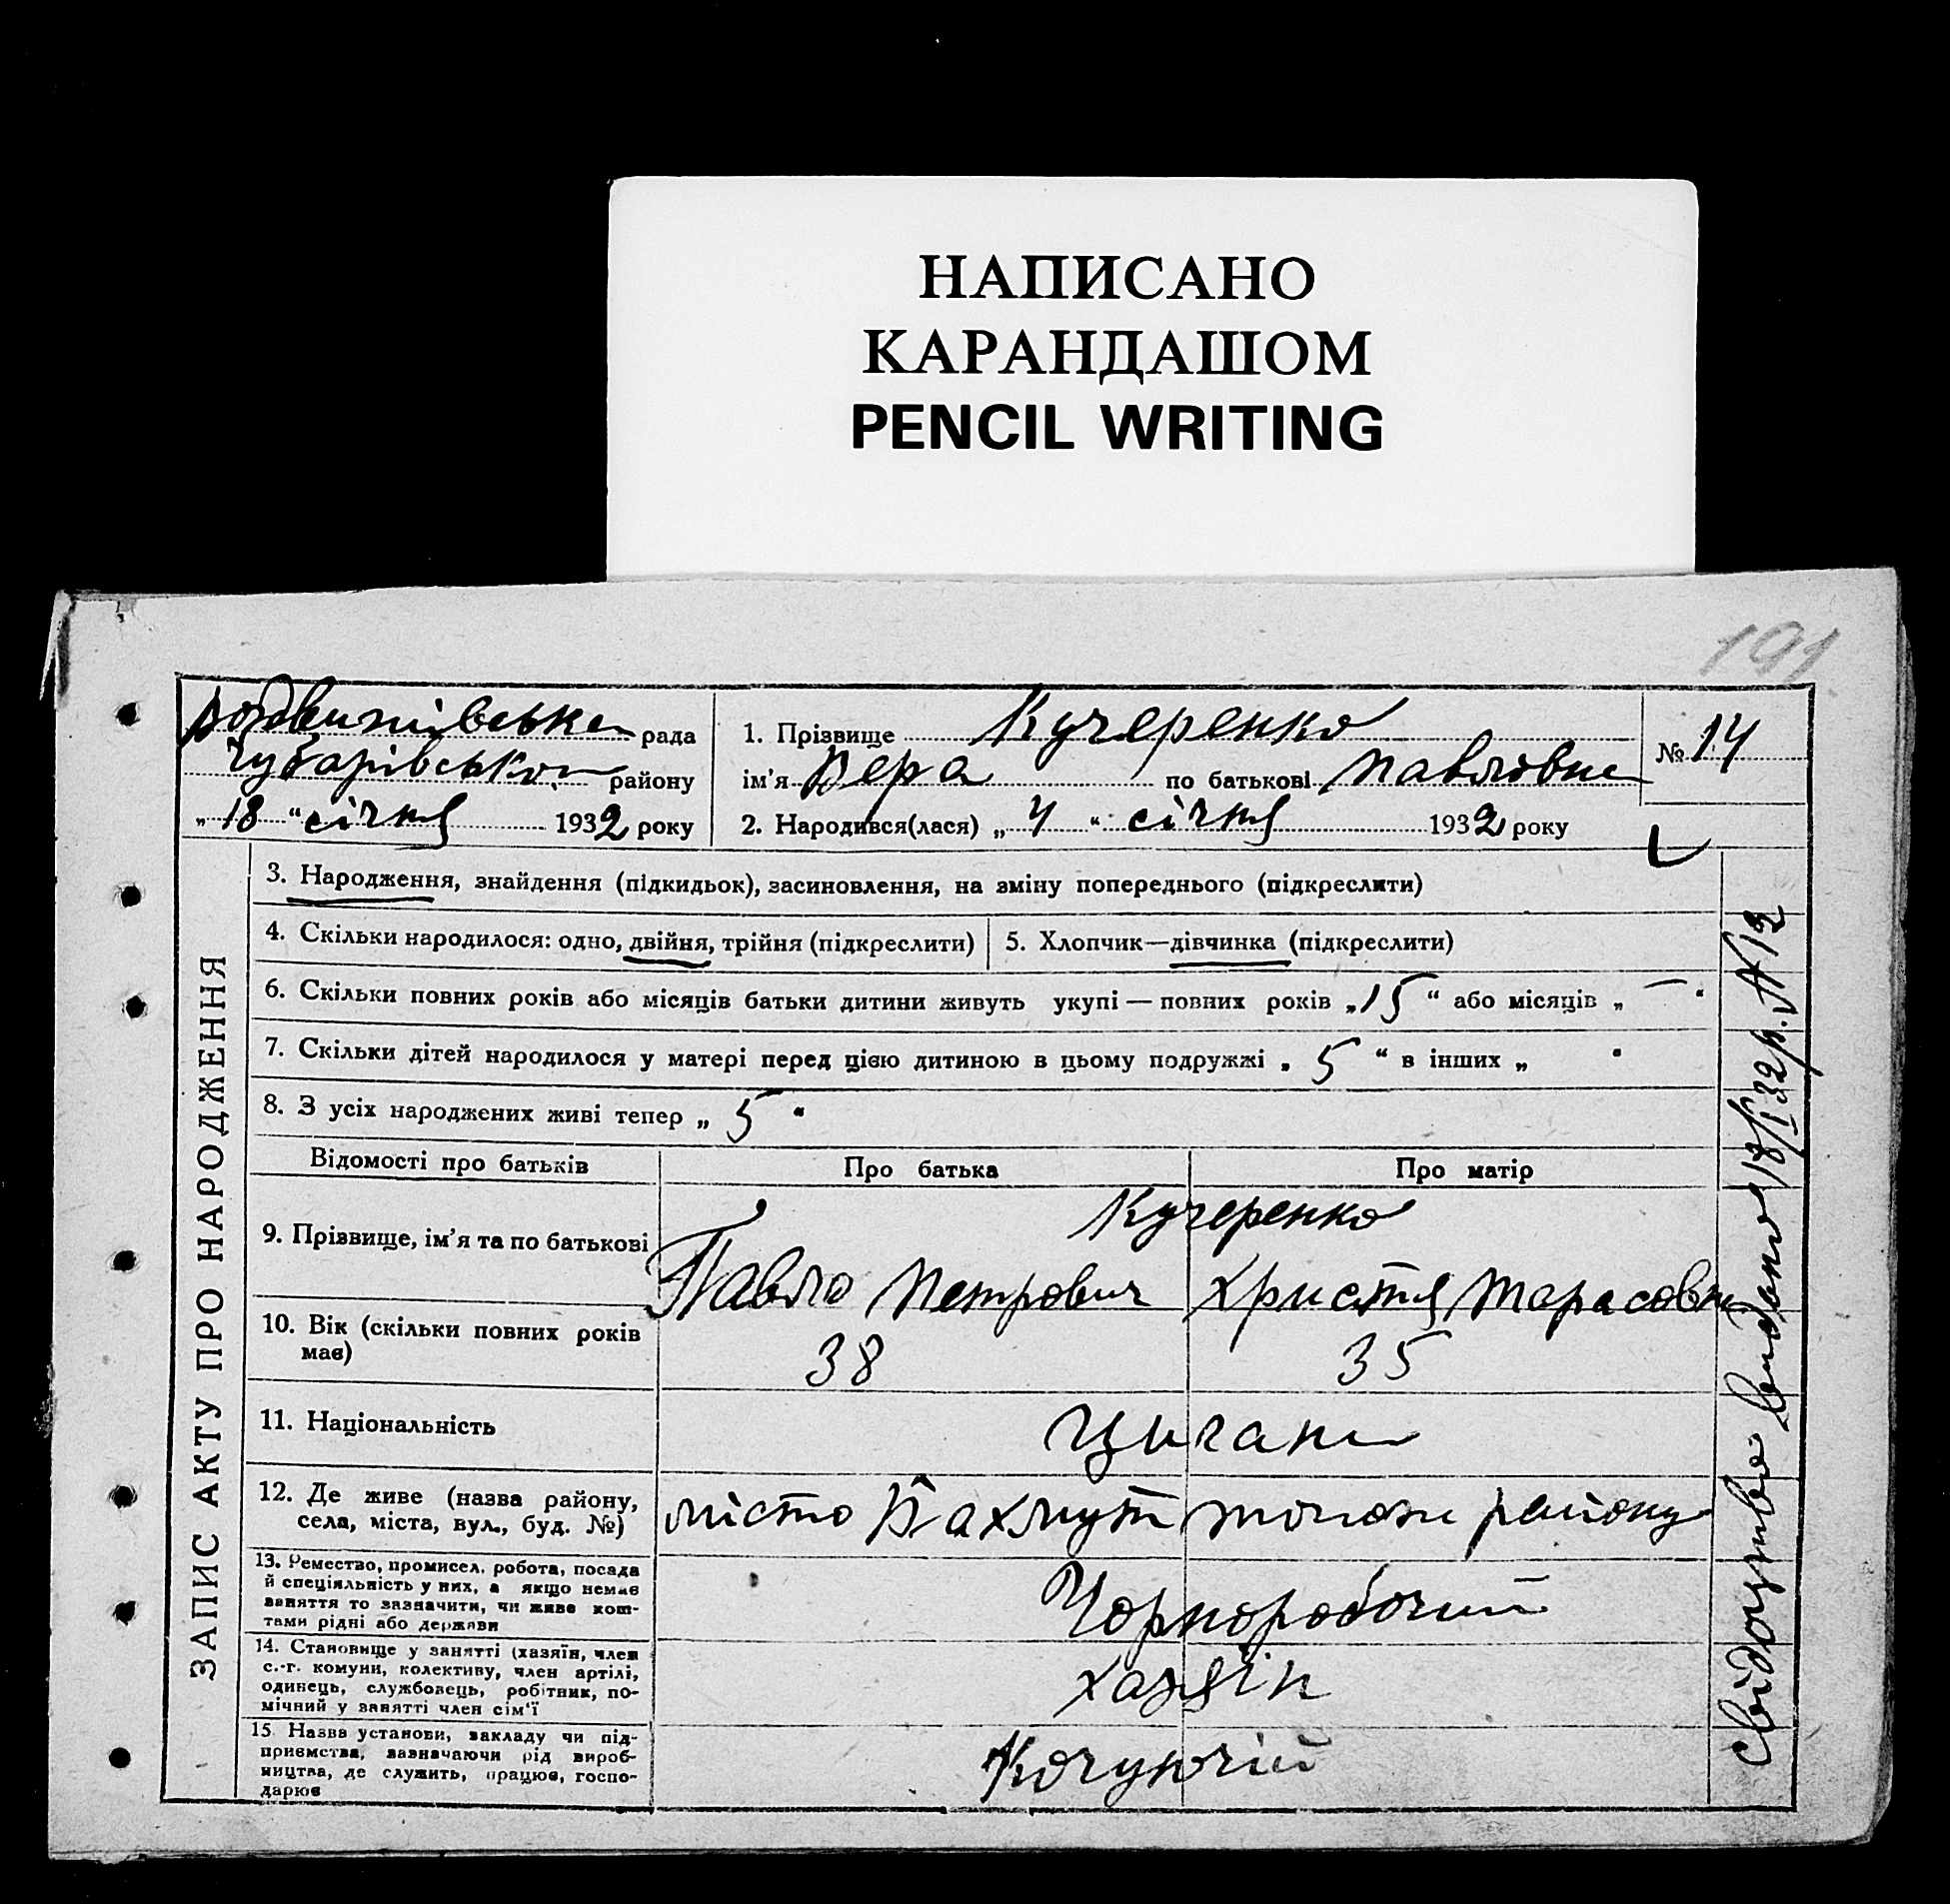 НАПИСАНО
КАРАНДАШОМ
PENCIL WRITING
191
рада
Чубарівського району
„ 18 “ січня 1932 року
1. Прізвище Кучеренко
ім'я Вера по батькові Павловна
2. Народився(лася) „ 4 “ січня 1932 року
№ 14
ЗАПИС АКТУ ПРО НАРОДЖЕННЯ
3. Народження, знайдення (підкидьок), засиновлення, на зміну попереднього (підкреслити)
4. Скільки народилося: одно, двійня, трійня (підкреслити)
5. Хлопчик—дівчинка (підкреслити)
6. Скільки повних років або місяців батьки дитини живуть укупі — повних років „ 15 “ або місяців „ — “
7. Скільки дітей народилося у матері перед цією дитиною в цьому подружжі „ 5 “ в інших „ “
8. З усіх народжених живі тепер „ 5 “
Відомості про батьків Про батька Про матір
9. Прізвище, ім'я та по батькові
Кучеренко
Павло Петрович Христя Тарасовна
10. Вік (скільки повних років
має)
38 35
11. Національність
Цигани
12. Де живе (назва району,
села, міста, вул., буд. №)
місто Бахмут району
13. Ремество, промисел, робота, посада
й спеціяльність у них, а якщо немає
заняття то зазначити, чи живе кош-
тами рідні або держави
Чорноробочий
14. Становище у занятті (хазяїн, член
с.-г. комуни, колективу, член артілі,
одинець, службовець, робітник, по-
мічний у занятті член сім'ї
хазяїн
15. Назва установи, закладу чи під-
приємства, зазначаючи рід вироб-
ництва, де служить, працює, госпо-
дарює
Кочуючій
Свідоцтво видано 18/I 32 р. № 12